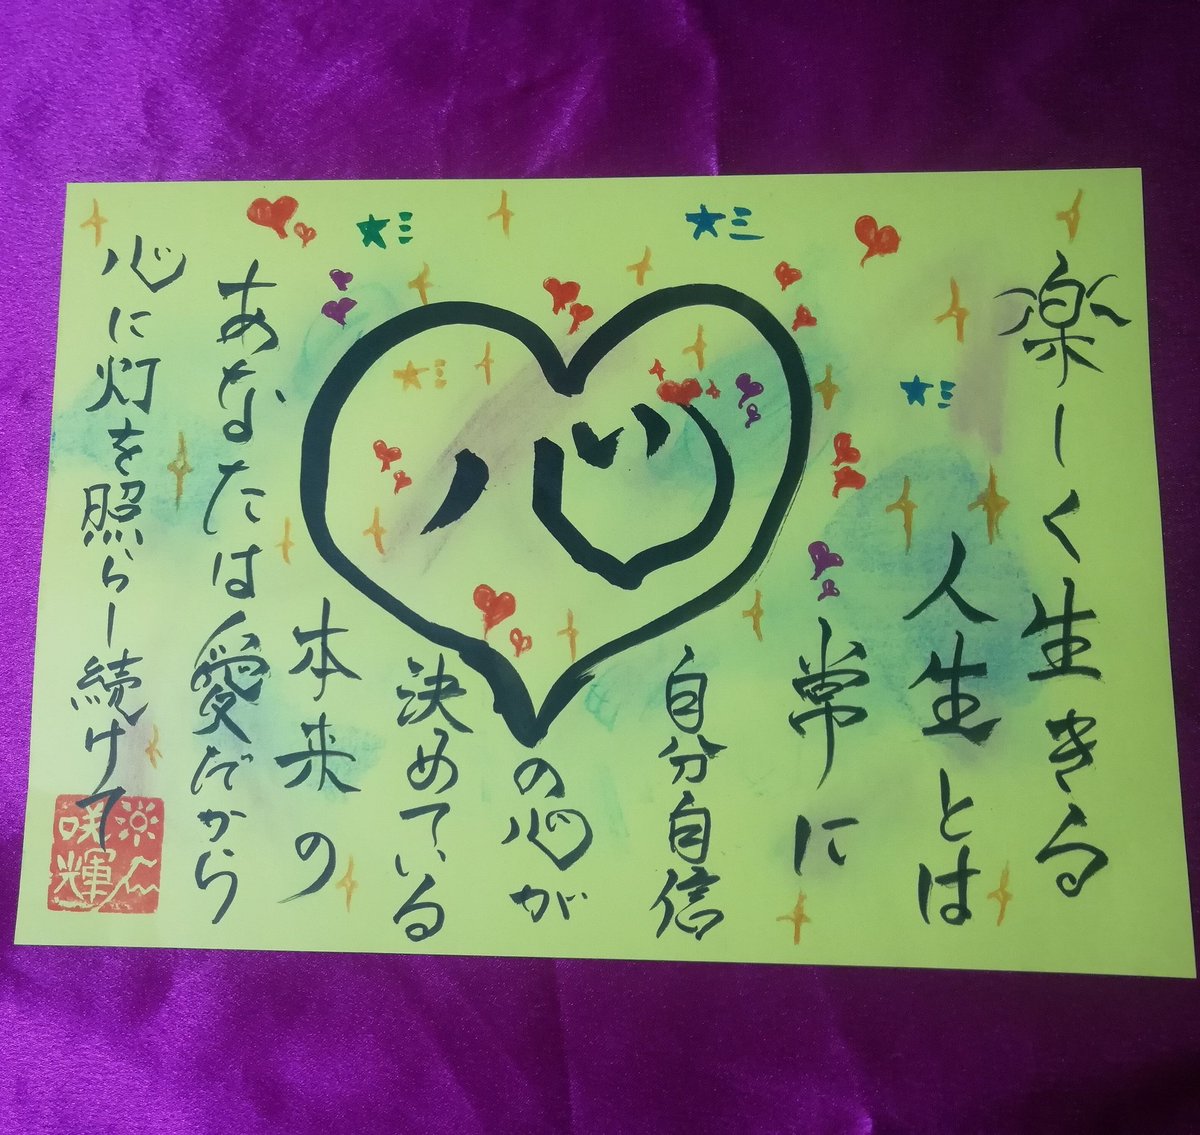 楽しく生きる
人生とは
常に
自分自信
の心が
決めている
本来の
あなたは愛だから
心に灯を照らし続けて
心
咲輝